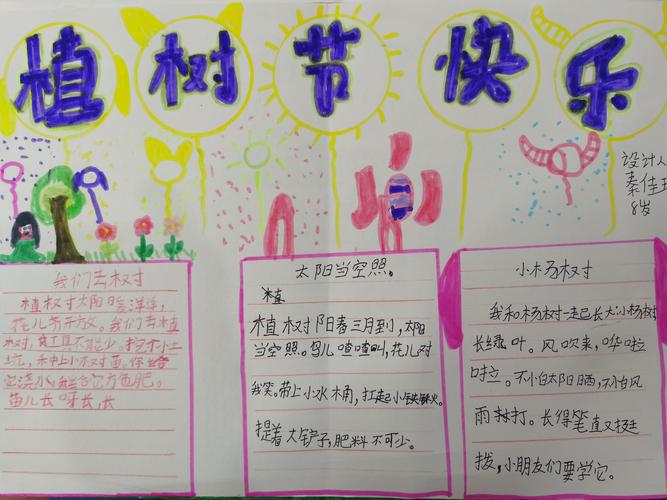 植树节快乐
设计人
秦佳
8岁
我们去树
植树时太阳日暖洋洋，
花儿齐开放。我们去植
树，工具不能少。挖个小土
坑，禾中上小树苗。你给
它浇水，我给它方施肥。
苗儿长呀长，长
太阳当空照。
植
植树阳春三月到，太阳
当空照。鸟儿喳喳叫，花儿对
我笑。带上小水桶，扛起小铁锹。
提着大铲子，肥料不可少。
小杨树
我和杨树一走已长大，小杨树
长绿叶。风吹来，哗啦
啦。不怕太阳晒，不怕风
雨打。长得笔直又挺
拨，小朋友们要学它。